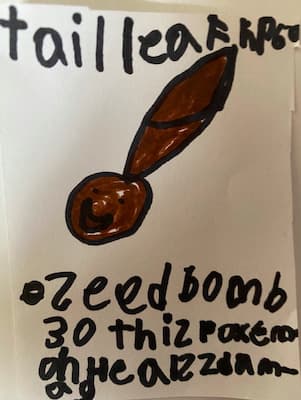 tailleaf HP60
zeedbomb
30 thiz Pokem
on Healz